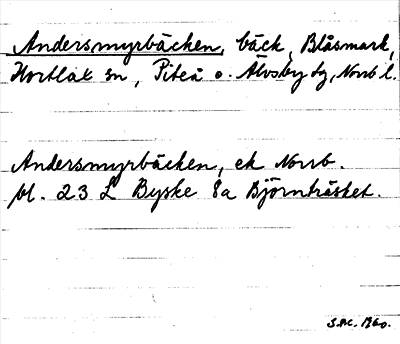 Andersmyrbäcken, bäck, Blåsmark,
Hortlax sn, Piteå o. Älvsby dg, Norrb l.
Andersmyrbäcken, ek Norrb.
bl. 23 L Byske 8a Björnträsket.
S.A.C. 1960.